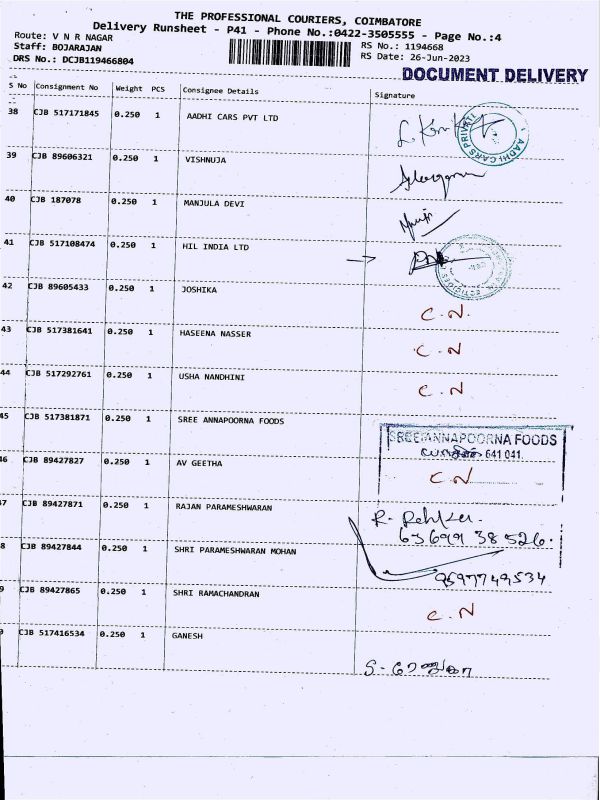 THE PROFESSIONAL COURIERS, COIMBATORE
Delivery Runsheet - P41 - Phone No.:0422-3505555 - Page No.:4
Route: V N R NAGAR
RS No.: 1194668
Staff: BOJARAJAN
RS Date: 26-Jun-2023
DRS No.: DCJB119466804
DOCUMENT DELIVERY
S No Consignment No Weight PCS Consignee Details Signature
38 CJB 517171845 0.250 1 AADHI CARS PVT LTD
AADHI CARS PRIVATE
39 CJB 89606321 0.250 1 VISHNUJA
40 CJB 187078 0.250 1 MANJULA DEVI
41 CJB 517108474 0.250 1 HIL INDIA LTD
42 CJB 89605433 0.250 1 JOSHIKA
C.N.
43 CJB 517381641 0.250 1 HASEENA NASSER
C.N
44 CJB 517292761 0.250 1 USHA NANDHINI
C.N
45 CJB 517381871 0.250 1 SREE ANNAPOORNA FOODS
SREE ANNAPOORNA FOODS
641 041.
46 CJB 89427827 0.250 1 AV GEETHA
C.N
47 CJB 89427871 0.250 1 RAJAN PARAMESHWARAN
63699 38526.
8 CJB 89427844 0.250 1 SHRI PARAMESHWARAN MOHAN
9597749534
9 CJB 89427865 0.250 1 SHRI RAMACHANDRAN
C.N
0 CJB 517416534 0.250 1 GANESH